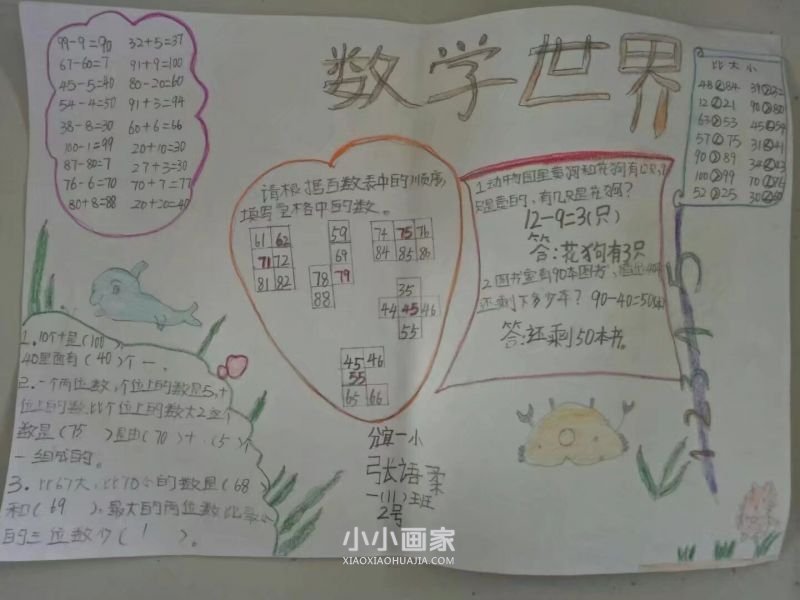 数学世界
99-9=90 32+5=37
67-60=7 91+9=100
45-5=40 80-20=60
54-4=50 91+3=94
38-8=30 60+6=66
100-1=99 20+10=30
87-80=7 27+3=30
76-6=70 70+7=77
80+8=88 20+20=40
比大小
48 84
12 21
63 53
57 75
90 89
100 99
52 25
请根据百数表中的顺序,
填写空格中的数。
61 62
71 72
81 82
59
69
78 79
88
74 75 76
84 85 86
35
44 45 46
55
45 46
55
65 66
12-9=3(只)
答:花狗有3只
2.图书室有90本图书,
还剩下多少本? 90-40=50(本)
答:还剩50本书。
1 2 3 4 5
1.10个十是(100),
40里面有(40)个一。
2.一个两位数,个位上的数是5,十
位上的数比个位上的数大2,这个
数是(75 )是由(70)+(5)个
一组成的。
3.比67大,比70小的数是(68)
和(69 )。最大的两位数比最小
的三位数少( 1 )。
分宜一小
张语柔
一(11)班
2号
小小画家
XIAOXIAOHUAJIA.COM